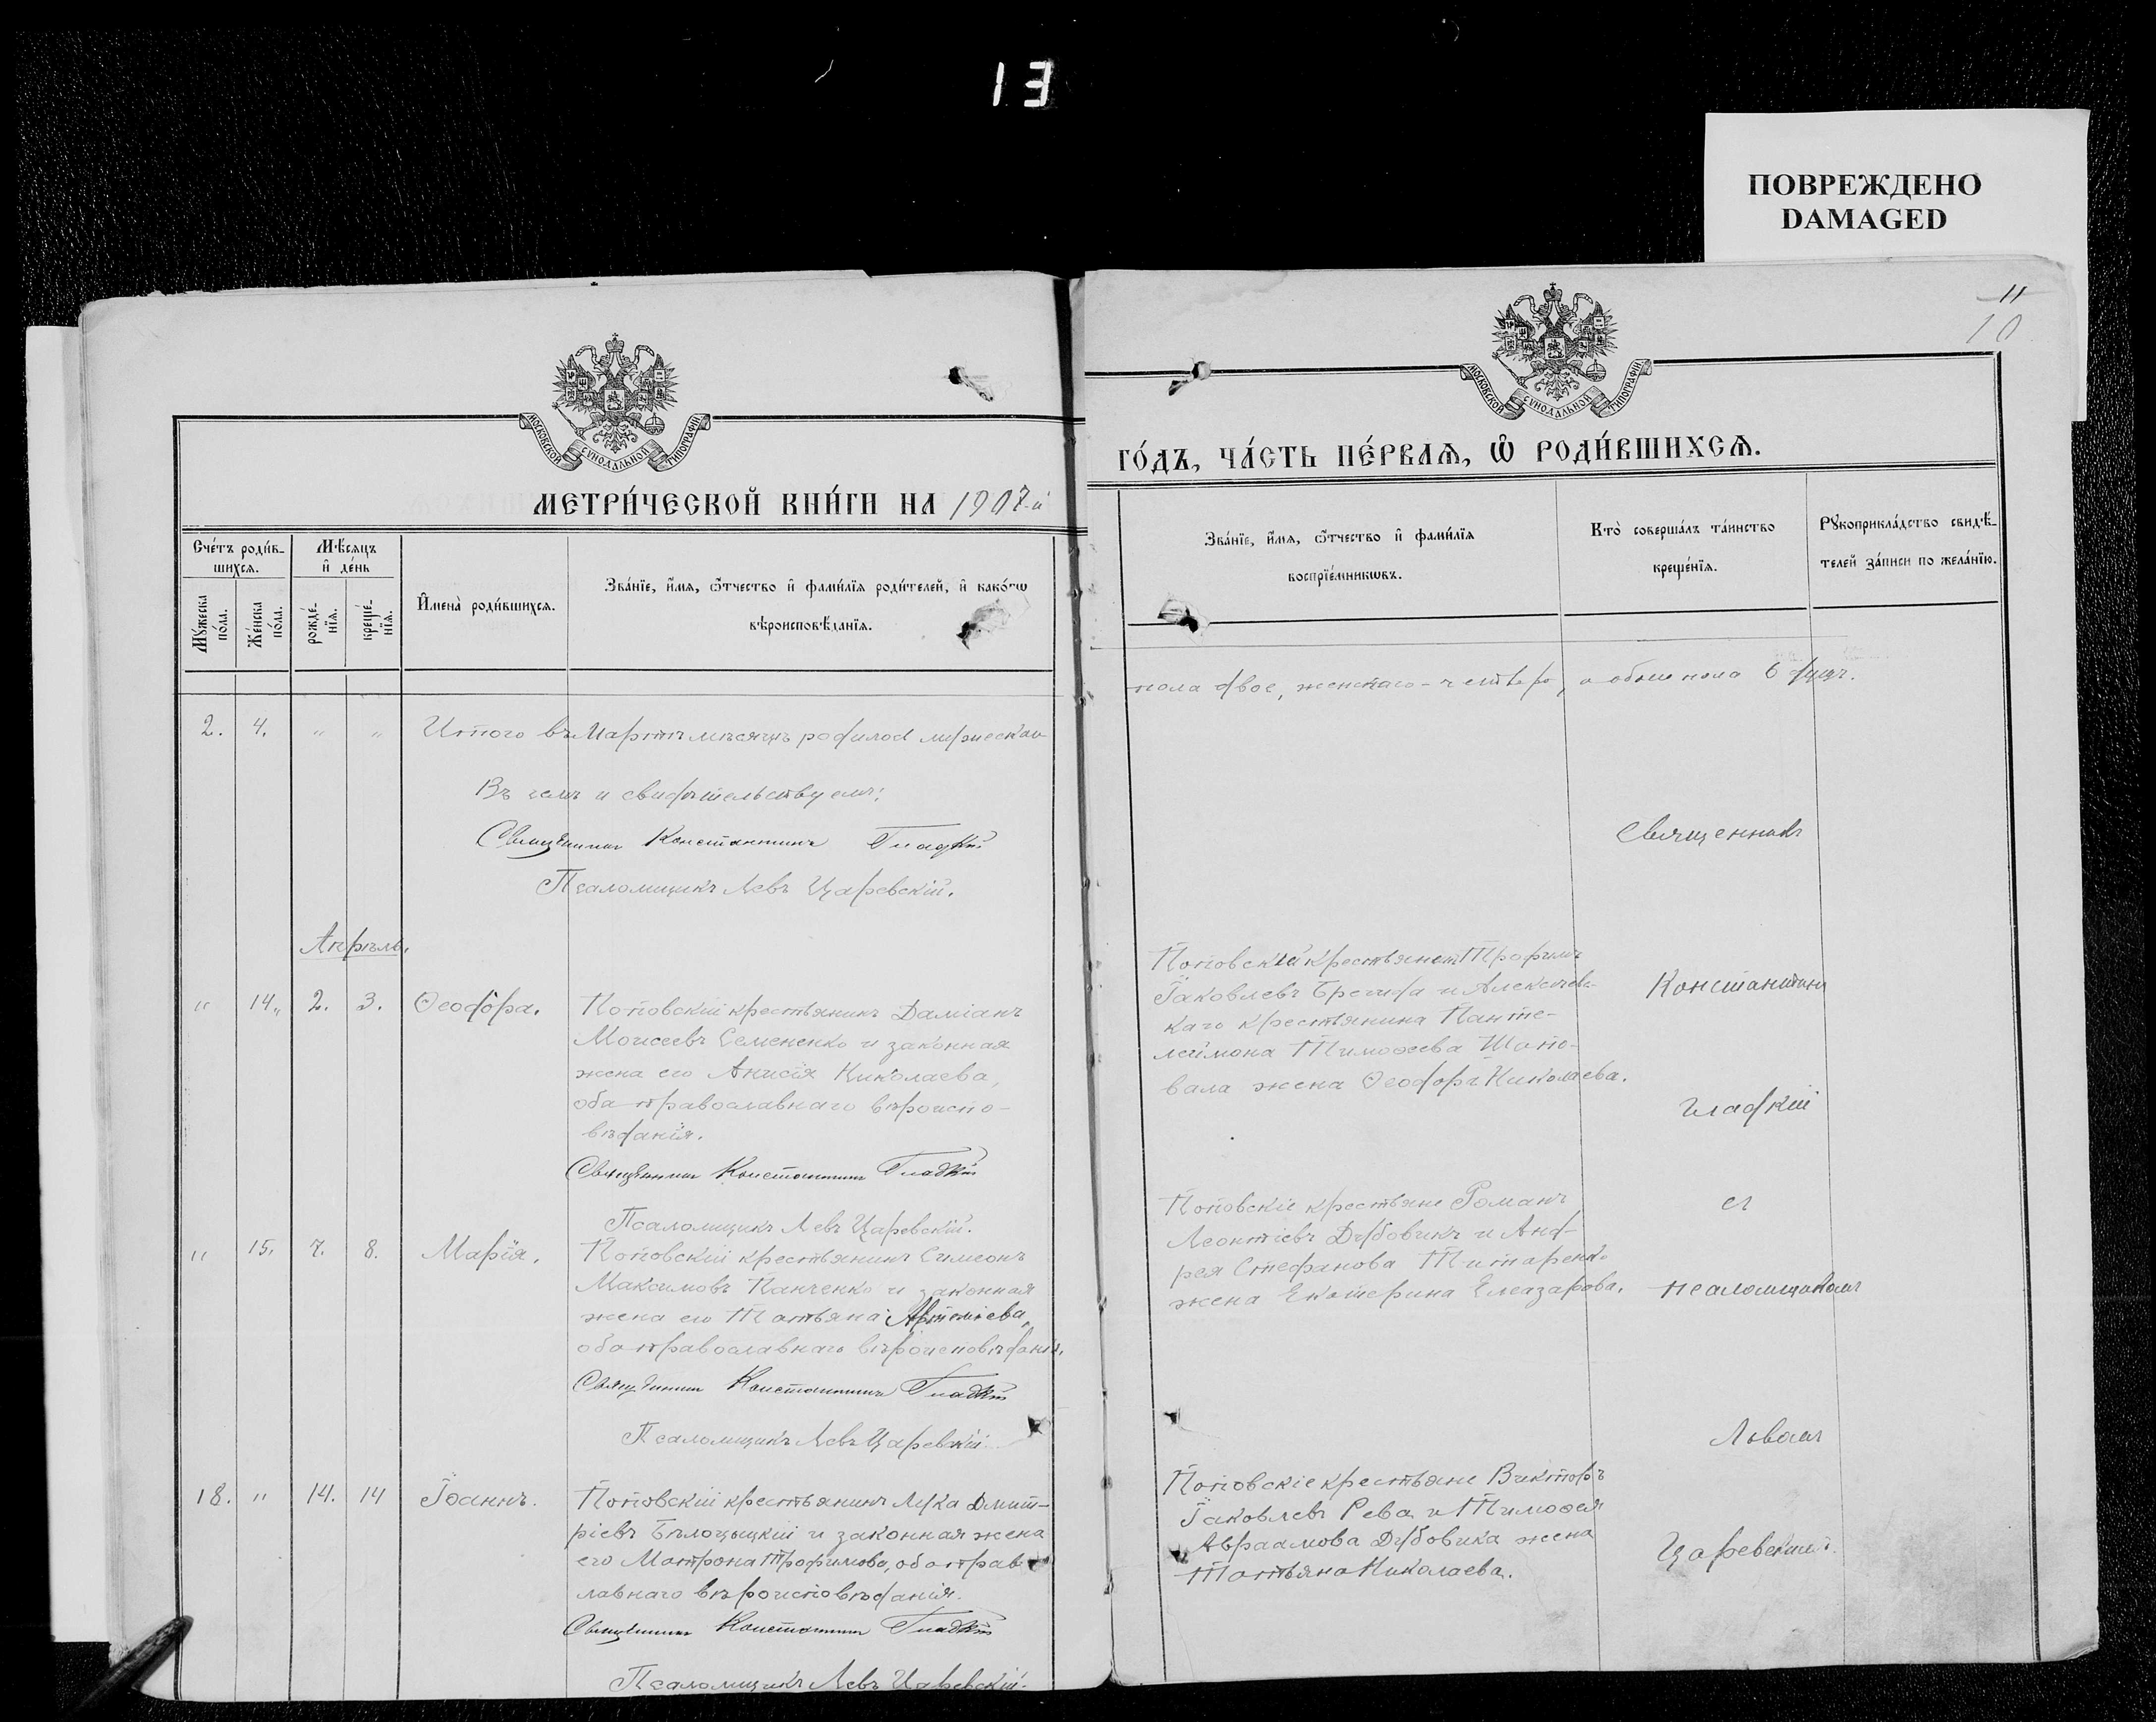 13
ПОВРЕЖДЕНО
DAMAGED
11
10
МОСКОВСКОЙ СѴНОДАЛЬНОЙ ТИПОГРАФІИ
МОСКОВСКОЙ СѴНОДАЛЬНОЙ ТИПОГРАФІИ
МЕТРИ́ЧЕСКОЙ КНИ́ГИ НА 1907-й
ГО́ДЪ, ЧА́СТЬ ПЕ́РВАѦ, Ѡ҆ РОДИ́ВШИХСѦ.
Сче́тъ роди́в-
шихсѧ.
Мѣ́сѧцъ
и҆ де́нь
Мꙋ́жеска
по́ла.
Же́нска
по́ла.
рожде́-
нїѧ.
креще́-
нїѧ.
И҆мена̀ роди́вшихсѧ.
Зва́нїе, и҆́мѧ, ѻ҆́тчество и҆ фами́лїѧ роди́телей, и҆ како́гѡ
вѣроисповѣ́данїѧ.
Зва́нїе, и҆́мѧ, ѻ҆́тчество и҆ фами́лїѧ
воспрїе́мникѡвъ.
Кто̀ соверша́лъ та́инство
креще́нїѧ.
Рꙋкоприкла́дство свидѣ́-
телей за́писи по жела́нїю.
2. 4. " " Итого въ Мартѣ мѣсяцѣ родилось мужескаго
пола двое, женскаго - четверо, а обоего пола 6 душъ.
Въ чемъ и свидѣтельствуемъ:
Священникъ Константинъ Гладкій
Псаломщикъ Левъ Царевскій.
Апрѣль.
" 14. 2. 3. Ѳеодора.
Поповскій крестьянинъ Даміанъ
Моисеевъ Семененко и законная
жена его Анисія Николаева,
оба православнаго вѣроиспо-
вѣданія.
Священникъ Константинъ Гладкій
Псаломщикъ Левъ Царевскій.
Поповскій крестьянинъ Трофимъ
Іаковлевъ и Алексѣевс-
каго крестьянина Панте-
леймона Тимоѳеева Шапо-
вала жена Ѳеодора Николаева.
Священникъ
Константинъ
Гладкій
съ
псаломщикомъ
Львомъ
Царевскимъ.
" 15. 7. 8. Марія.
Поповскій крестьянинъ Симеонъ
Максимовъ Панченко и законная
жена его Татьяна Артеміева,
оба православнаго вѣроисповѣданія.
Священникъ Константинъ Гладкій
Псаломщикъ Левъ Царевскій
Поповскіе крестьяне Романъ
Леонтіевъ Дубовикъ и Анд-
рея Стефанова Титаренко
жена Екатерина Елеазарова.
18. " 14. 14 Іоаннъ.
Поповскій крестьянинъ Лука Дмит-
ріевъ Бѣлоцыцкій и законная жена
его Матрона Трофимова, оба право-
лавнаго вѣроисповѣданія.
Священникъ Константинъ Гладкій
Псаломщикъ Левъ Царевскій.
Поповскіе крестьяне Викторъ
Іаковлевъ Рева и Тимоѳея
Авраамова Дубовика жена
Татьяна Николаева.